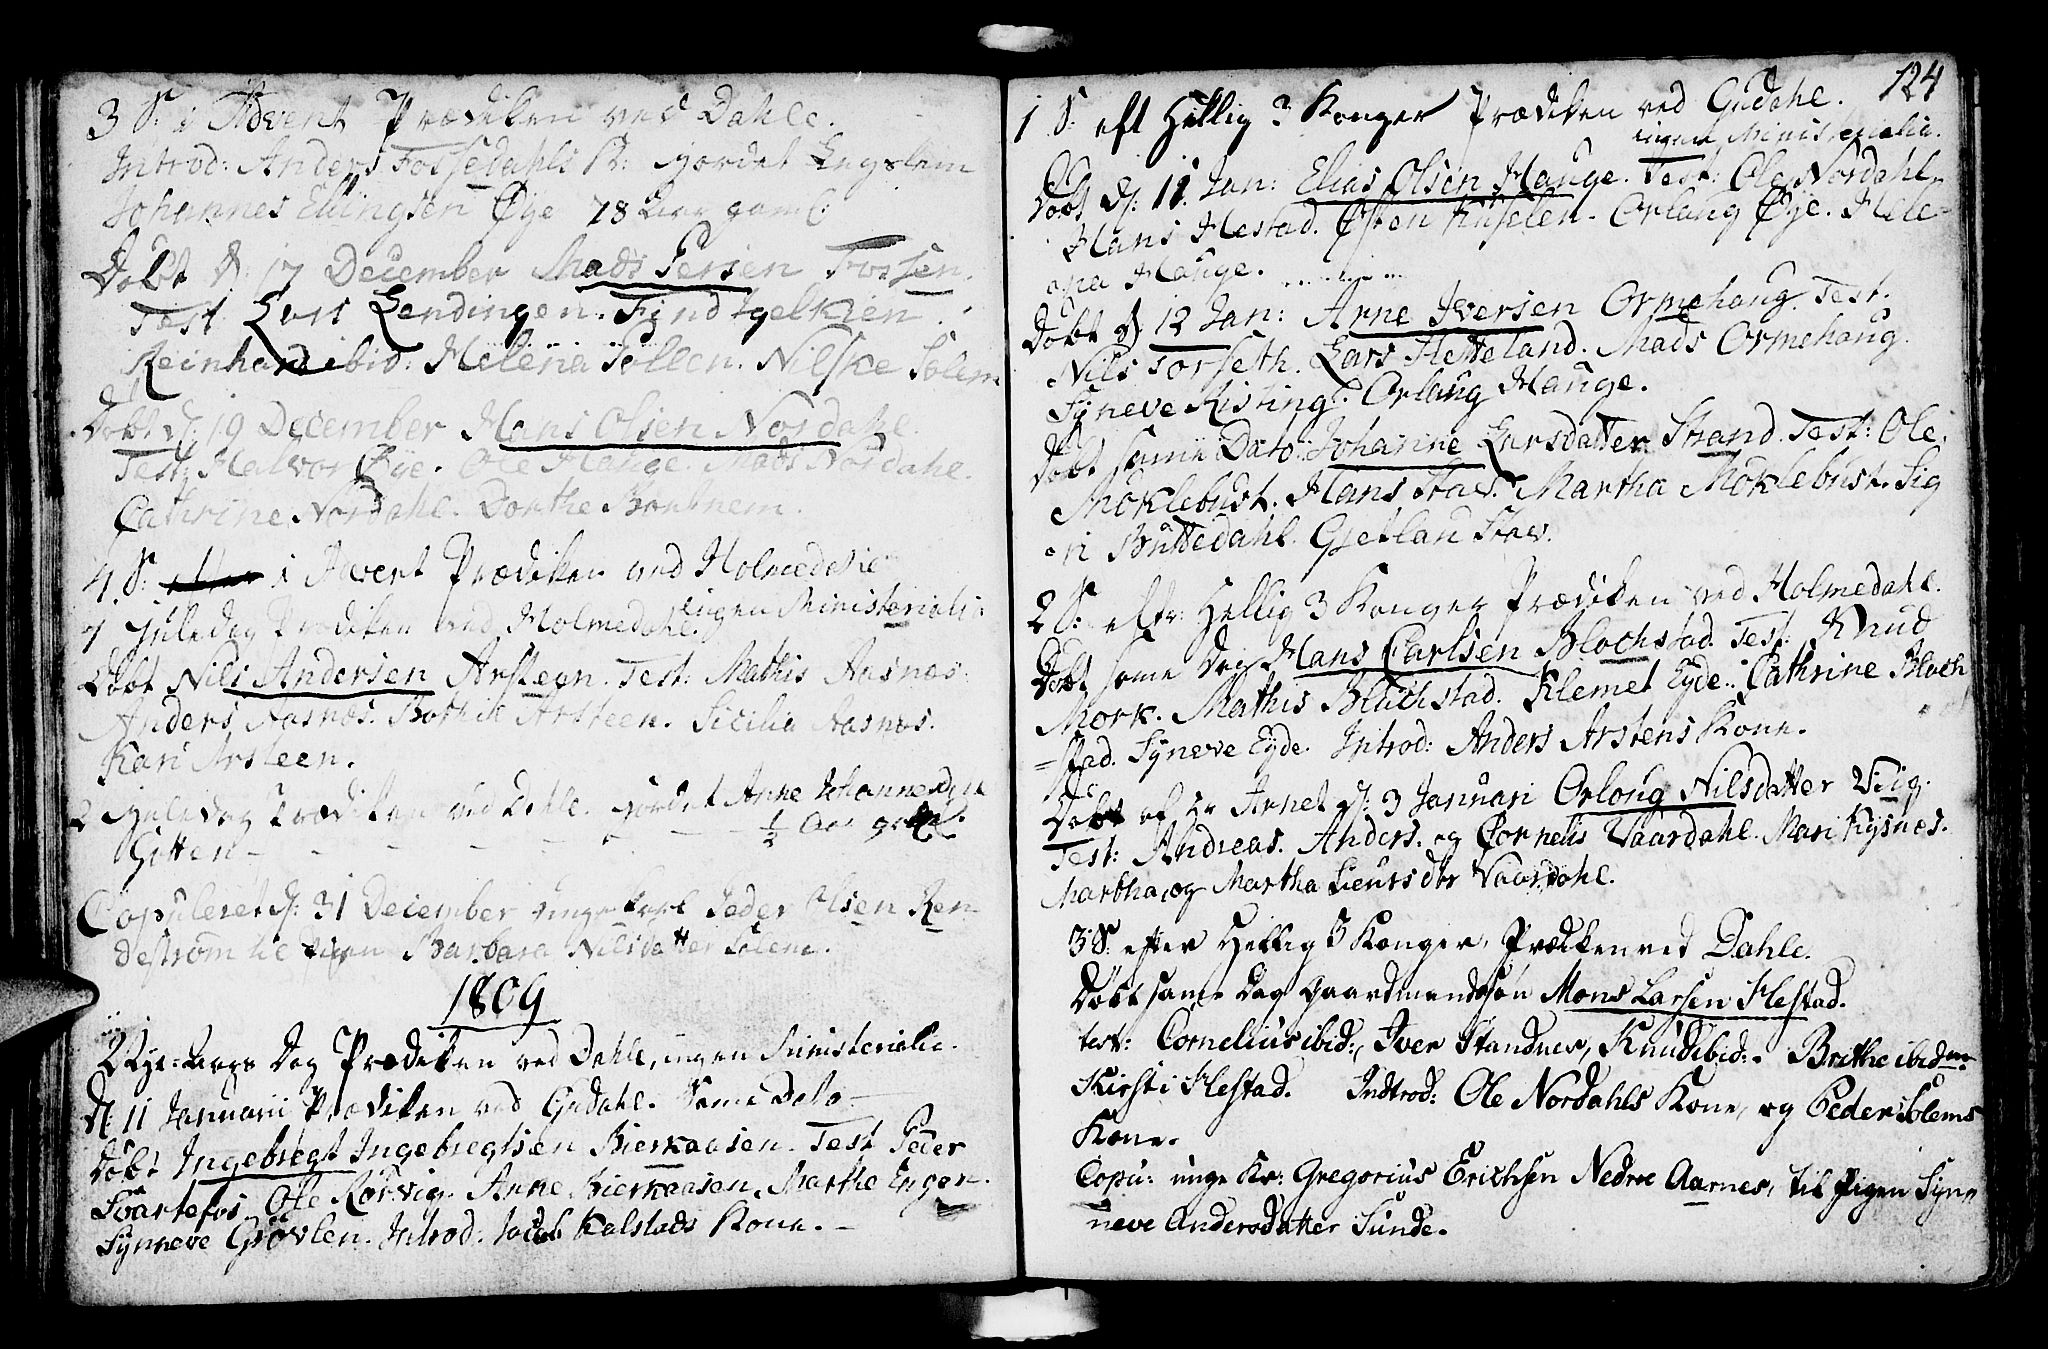 3 S: i Advent Prædiken ved Dahle.
Introd: Anders Fossedahls K: jordet Legslem
Johannes Ellingsen Øye 78 Aar gaml:
Døbt d: 17 December Mads Persen Fossen.
Test Lars Lendingen. Fynd
Reinhard ibid: Helena Solem. Nilske Solem
Døbt d: 19 December Hans Olsen Nordahl
Test: Halvor Øye. Ole Hauge. Mads Nordahl.
Cathrine Nordahl. Dorthe
4. S: i Advent Prædiken ved Holmedahl
1 Juledag Prædiken ved Holmedahl. ingen Ministerialia:
Døbt Nils Andersen Arsteen. Test: Mathis Aasnæs.
Anders Aasnæs. Arsteen. Sicilia Aasnæs.
Kari Arsteen.
2 Juledag Prædiken ved Dahle. jordet Anne Johannesdttr
Gitten - - - - - - 1/2 Aar gaml:
Copuleret d: 31 December unge Karl Peder Olsen Ren-
destrøm til Pigen Barbara Nilsdatter Solem.
1809
Nye-Aars Dag Prædiken ved Dahle, ingen Ministerialia.
D: 11 Januarii Prædiken ved Gudahl. Same Dato
Døbt Ingebregt Ingebregtsen Bierkaasen. Test Peder
Svartefos Ole Rørvig. Anne Bierkaasen. Marthe Engen.
Synneve Grøvlen. Introd: Jacob Kalstads Kone. -
124
1 S: eft Hellig 3 Konger Prædiken ved Gudahl.
ingen Ministerialia.
Døbt d: 11. Jan: Elias Olsen Hauge. Test: Ole Nordahl.
Hans Hestad. Østen Orlaug Øye. Hele-
na Hauge.
Døbt d: 12 Jan: Arne Iversen Ormehaug. Test.
Nils Torseth. Lars Hetteland. Mads Ormehaug.
Syneve Risting. Orlaug Hauge.
Døbt same Dato: Johanne Larsdatter Strand. Test: Ole
Møklebust. Hans Stav. Martha Møklebust. Sig
ri Buttedahl. Gjetlau Stav.
2 S: eftr: Hellig 3 Konger Prædiken ved Holmedahl.
Døbt same Dag Hans Carlsen Blochstad. Test: Knud
Mork. Mathis Blochstad. Klemet Eyde. Cathrine Bloch
=stad. Syneve Eyde. Introd: Anders Arstens Kone.
Døbt af Hr Arnet d: 3 Januari Orloug Nilsdatter Viig.
Test: Andreas. Anders. og Cornelis Vaardahl. Mari Kysnæs.
Marthe og Martha Vaardahl.
3 S: efter Hellig 3 Konger, Prædiken ved Dahle.
Døbt same Dag Gaardmandssøn Mons Larsen Flestad.
test: Cornelius ibid:, Iver Standnes, Knud ibid:. Brithe ibidem.
Kirsti Flestad. Indtrod: Ole Nordahls Kone, og Peder Solems
Kone.
Copu: unge Kr: Gregorius Erichsen Nedre Aarnes, til Pigen Syn-
neve Andersdatter Sunde.